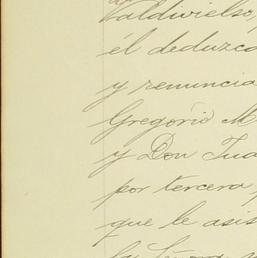 Valdivielso,
él deduzca
y renuncia
Gregorio M
y Don Jua
por tercera
que le asis
la Señora